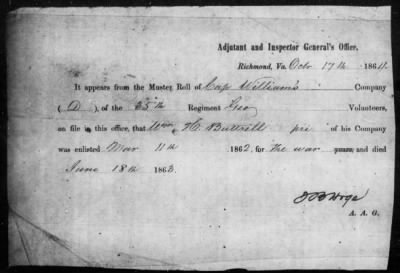 Adjutant and Inspector General's Office,
Richmond, Va. Octo 17th 1864.
It appears from the Muster Roll of Cap Williams Company
( D ), of the 65th Regiment Geo Volunteers,
on file in this office, that Wm H. Buttrill pri of his Company
was enlisted Mar 11th 1862, for the war and died
June 18th 1863.
A. A. G.